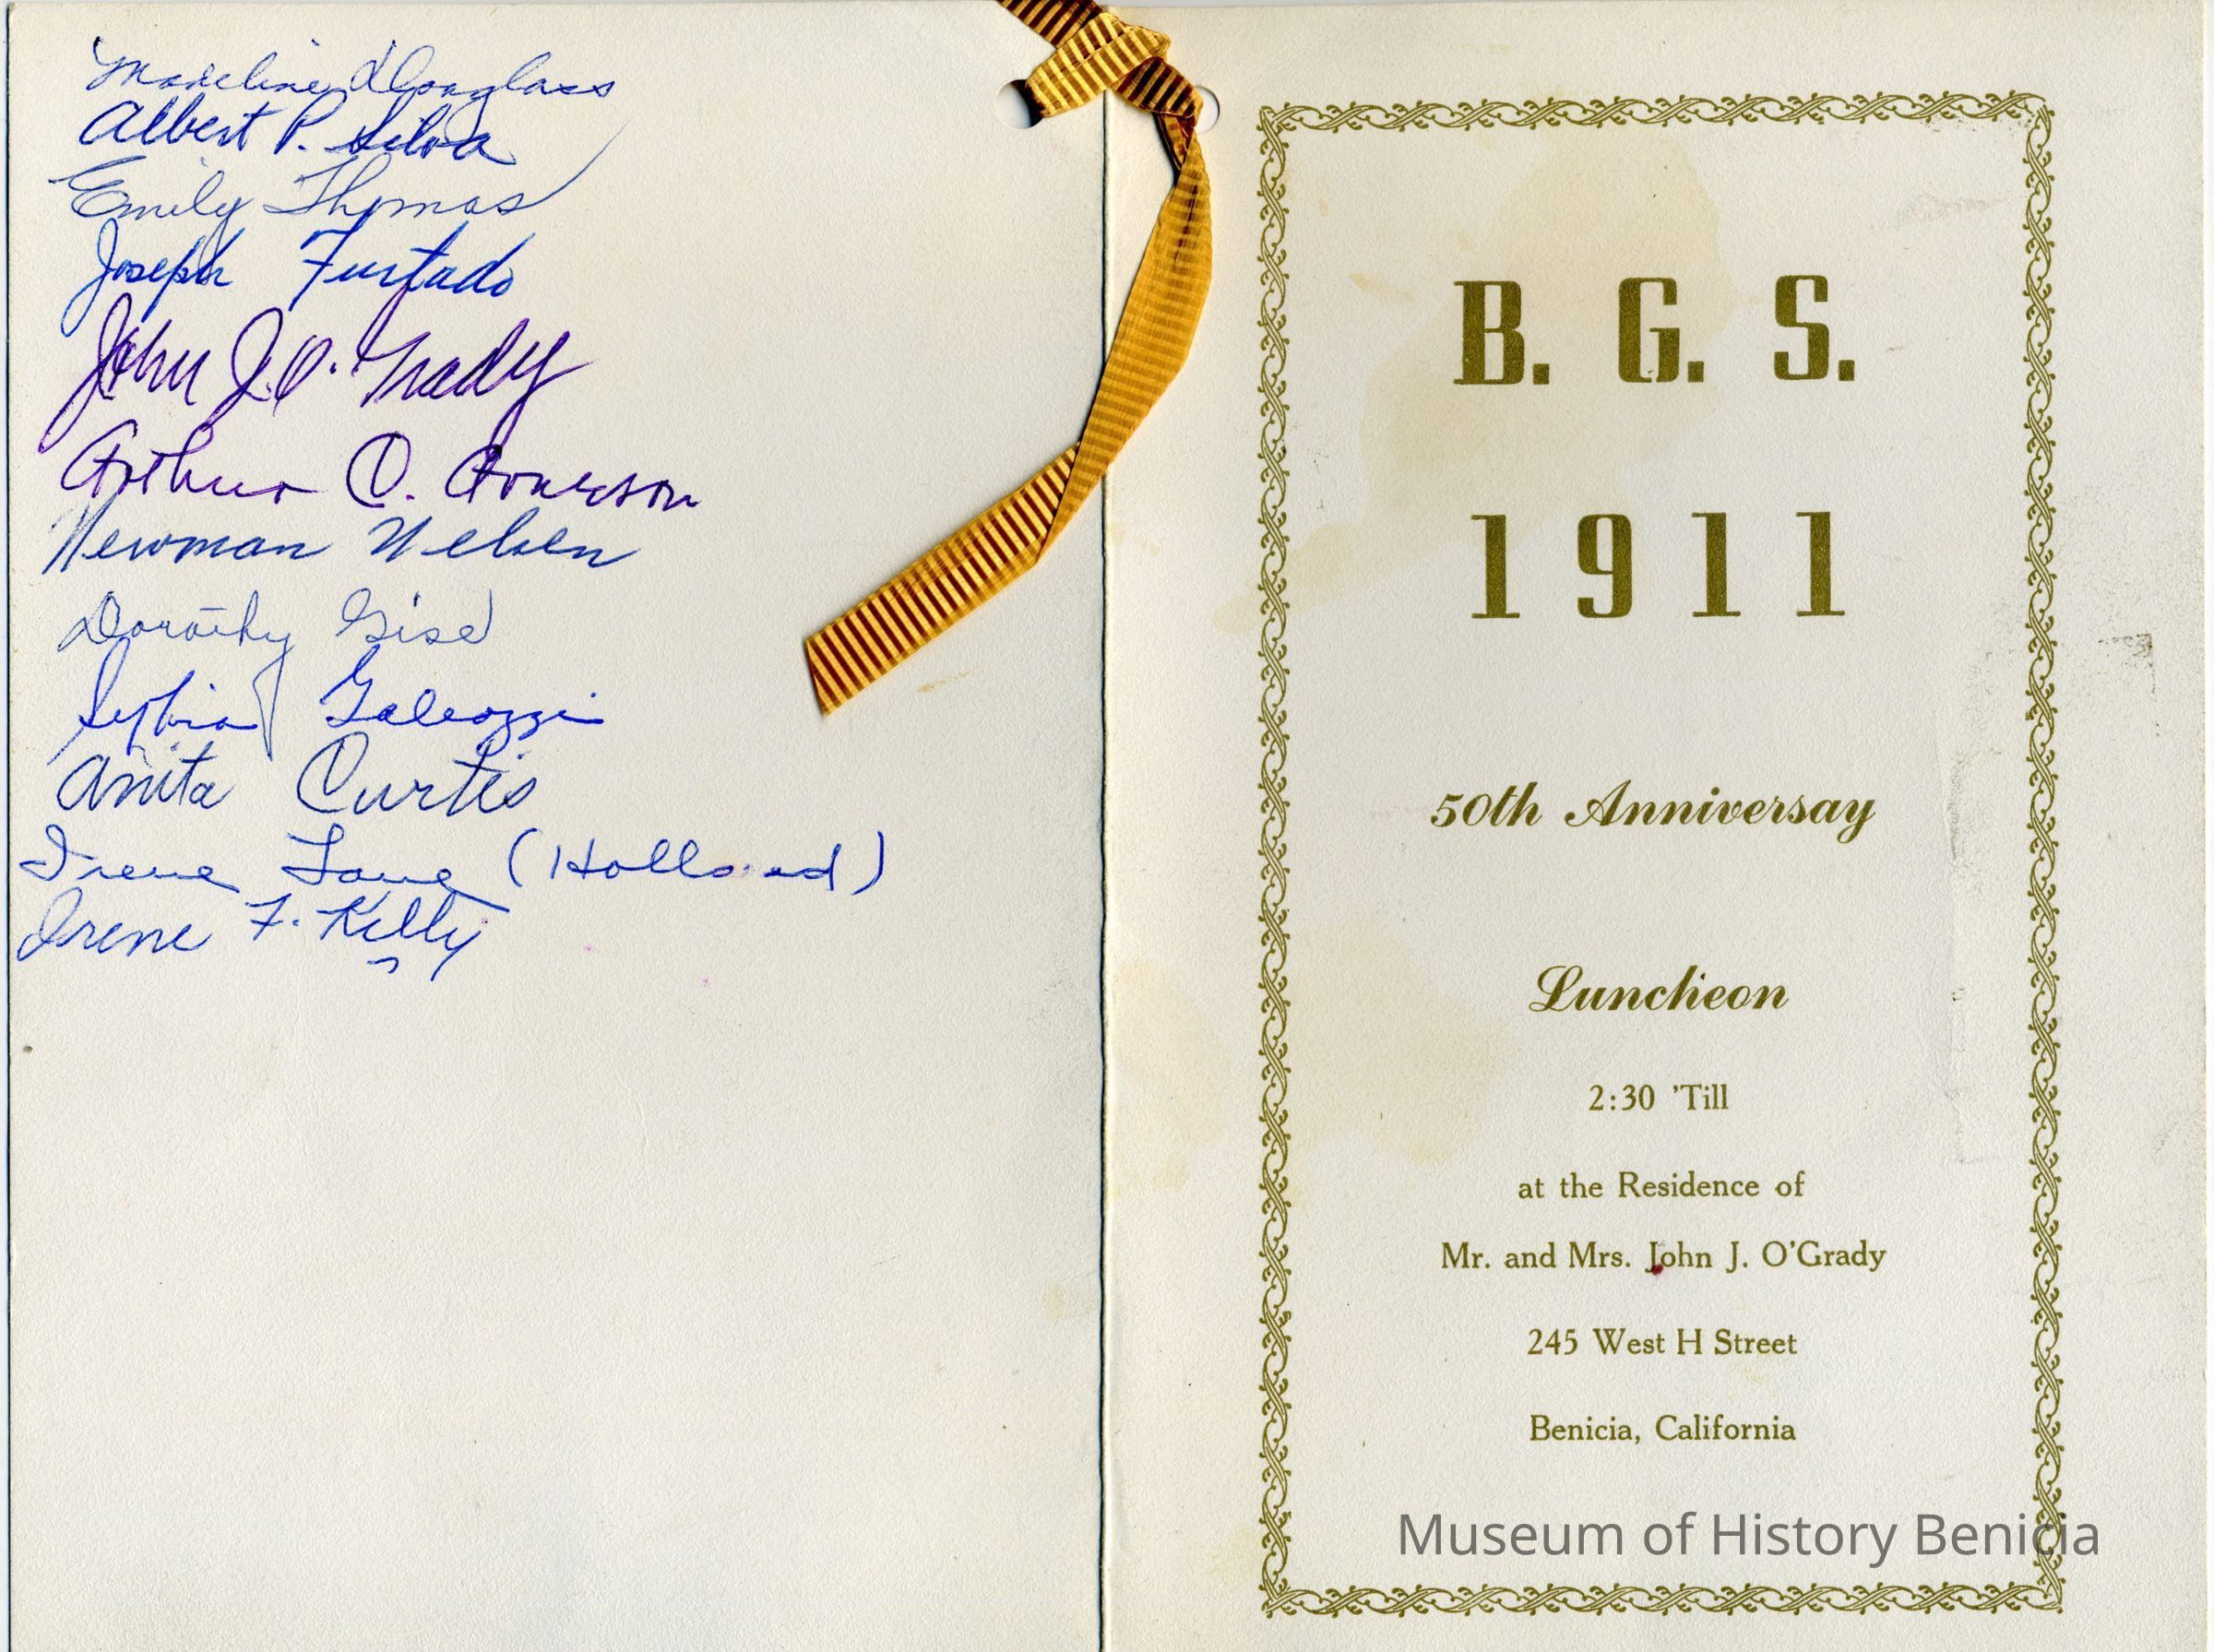 Madeline Douglass
Albert P. Silva
Emily Thomas
Joseph Furtado
John J. O'Grady
Arthur C.
Newman Nelsen
Dorothy Gise
Sylvia Galeazzi
Anita Curtis
Irene Lane (Holland)
Irene F. Kelly
B. G. S.
1911
50th Anniversay
Luncheon
2:30 'Till
at the Residence of
Mr. and Mrs. John J. O'Grady
245 West H Street
Benicia, California
Museum of History Benicia